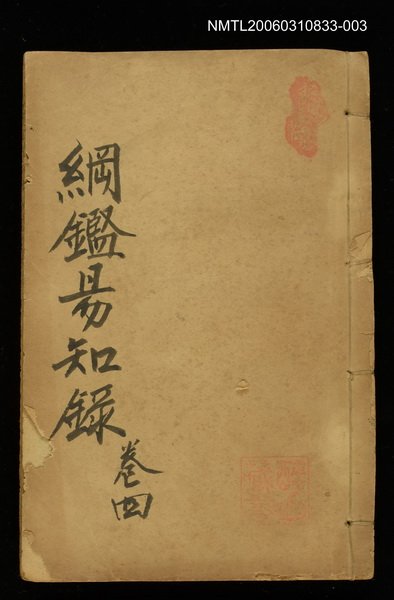 NMTL20060310833-003
綱鑑易知錄
卷四